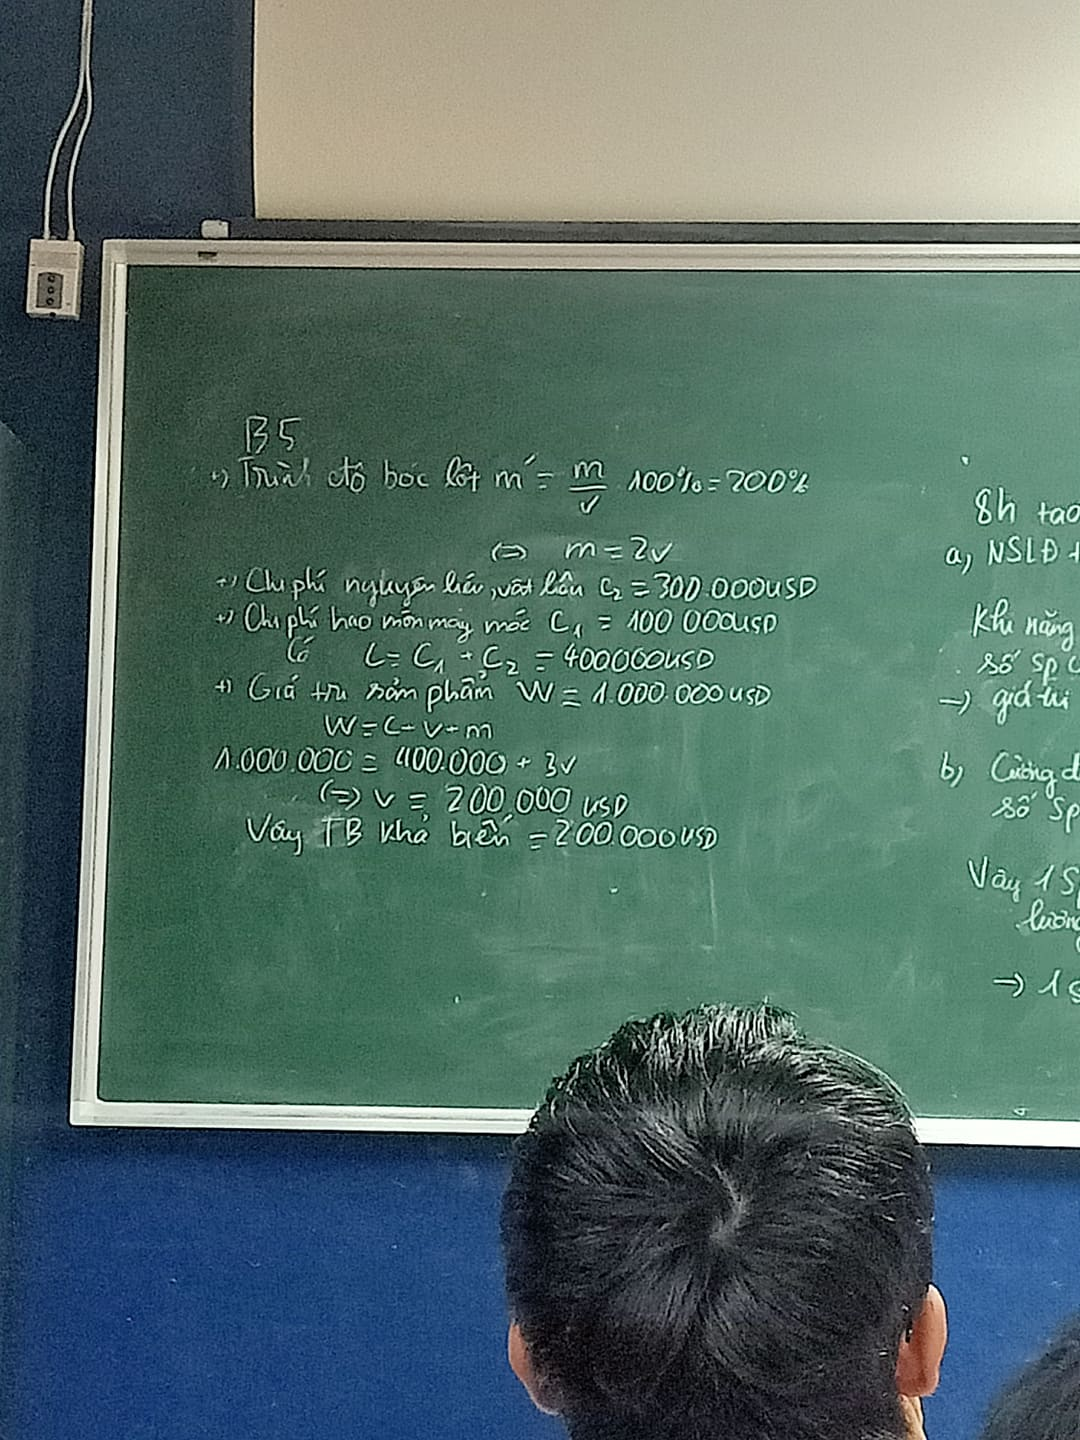 B5
+) Trình độ bóc lột m' = m/v 100% = 200%
<=> m = 2v
+) Chi phí nguyên liệu, vật liệu C2 = 300.000USD
+) Chi phí hao mòn máy móc C1 = 100 000USD
Có C = C1 + C2 = 400000USD
+) Giá trị sản phẩm W = 1.000.000USD
W = C + V + m
1.000.000 = 400.000 + 3v
(=) v = 200.000 USD
Vậy TB khả biến = 200.000USD
8h tạo
a, NSLĐ t
Khi năng
số sp
-) giá trị
b, Cường đ
số sp
Vậy 1 Sp
lượng
-) 1 s